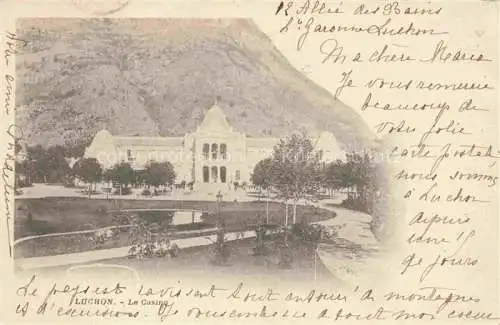 12 Allée des Bains
Hte Garonne Luchon
Ma chère Maria
Je vous remercie
beaucoup de
votre jolie
carte postale
nous sommes
à Luchon
depuis
une 15e
de jours
Le pays est ravissant tout entouré de montagnes
et d'excursions. Je vous embrasse de tout mon cœur
Votre amie
LUCHON. - Le Casino